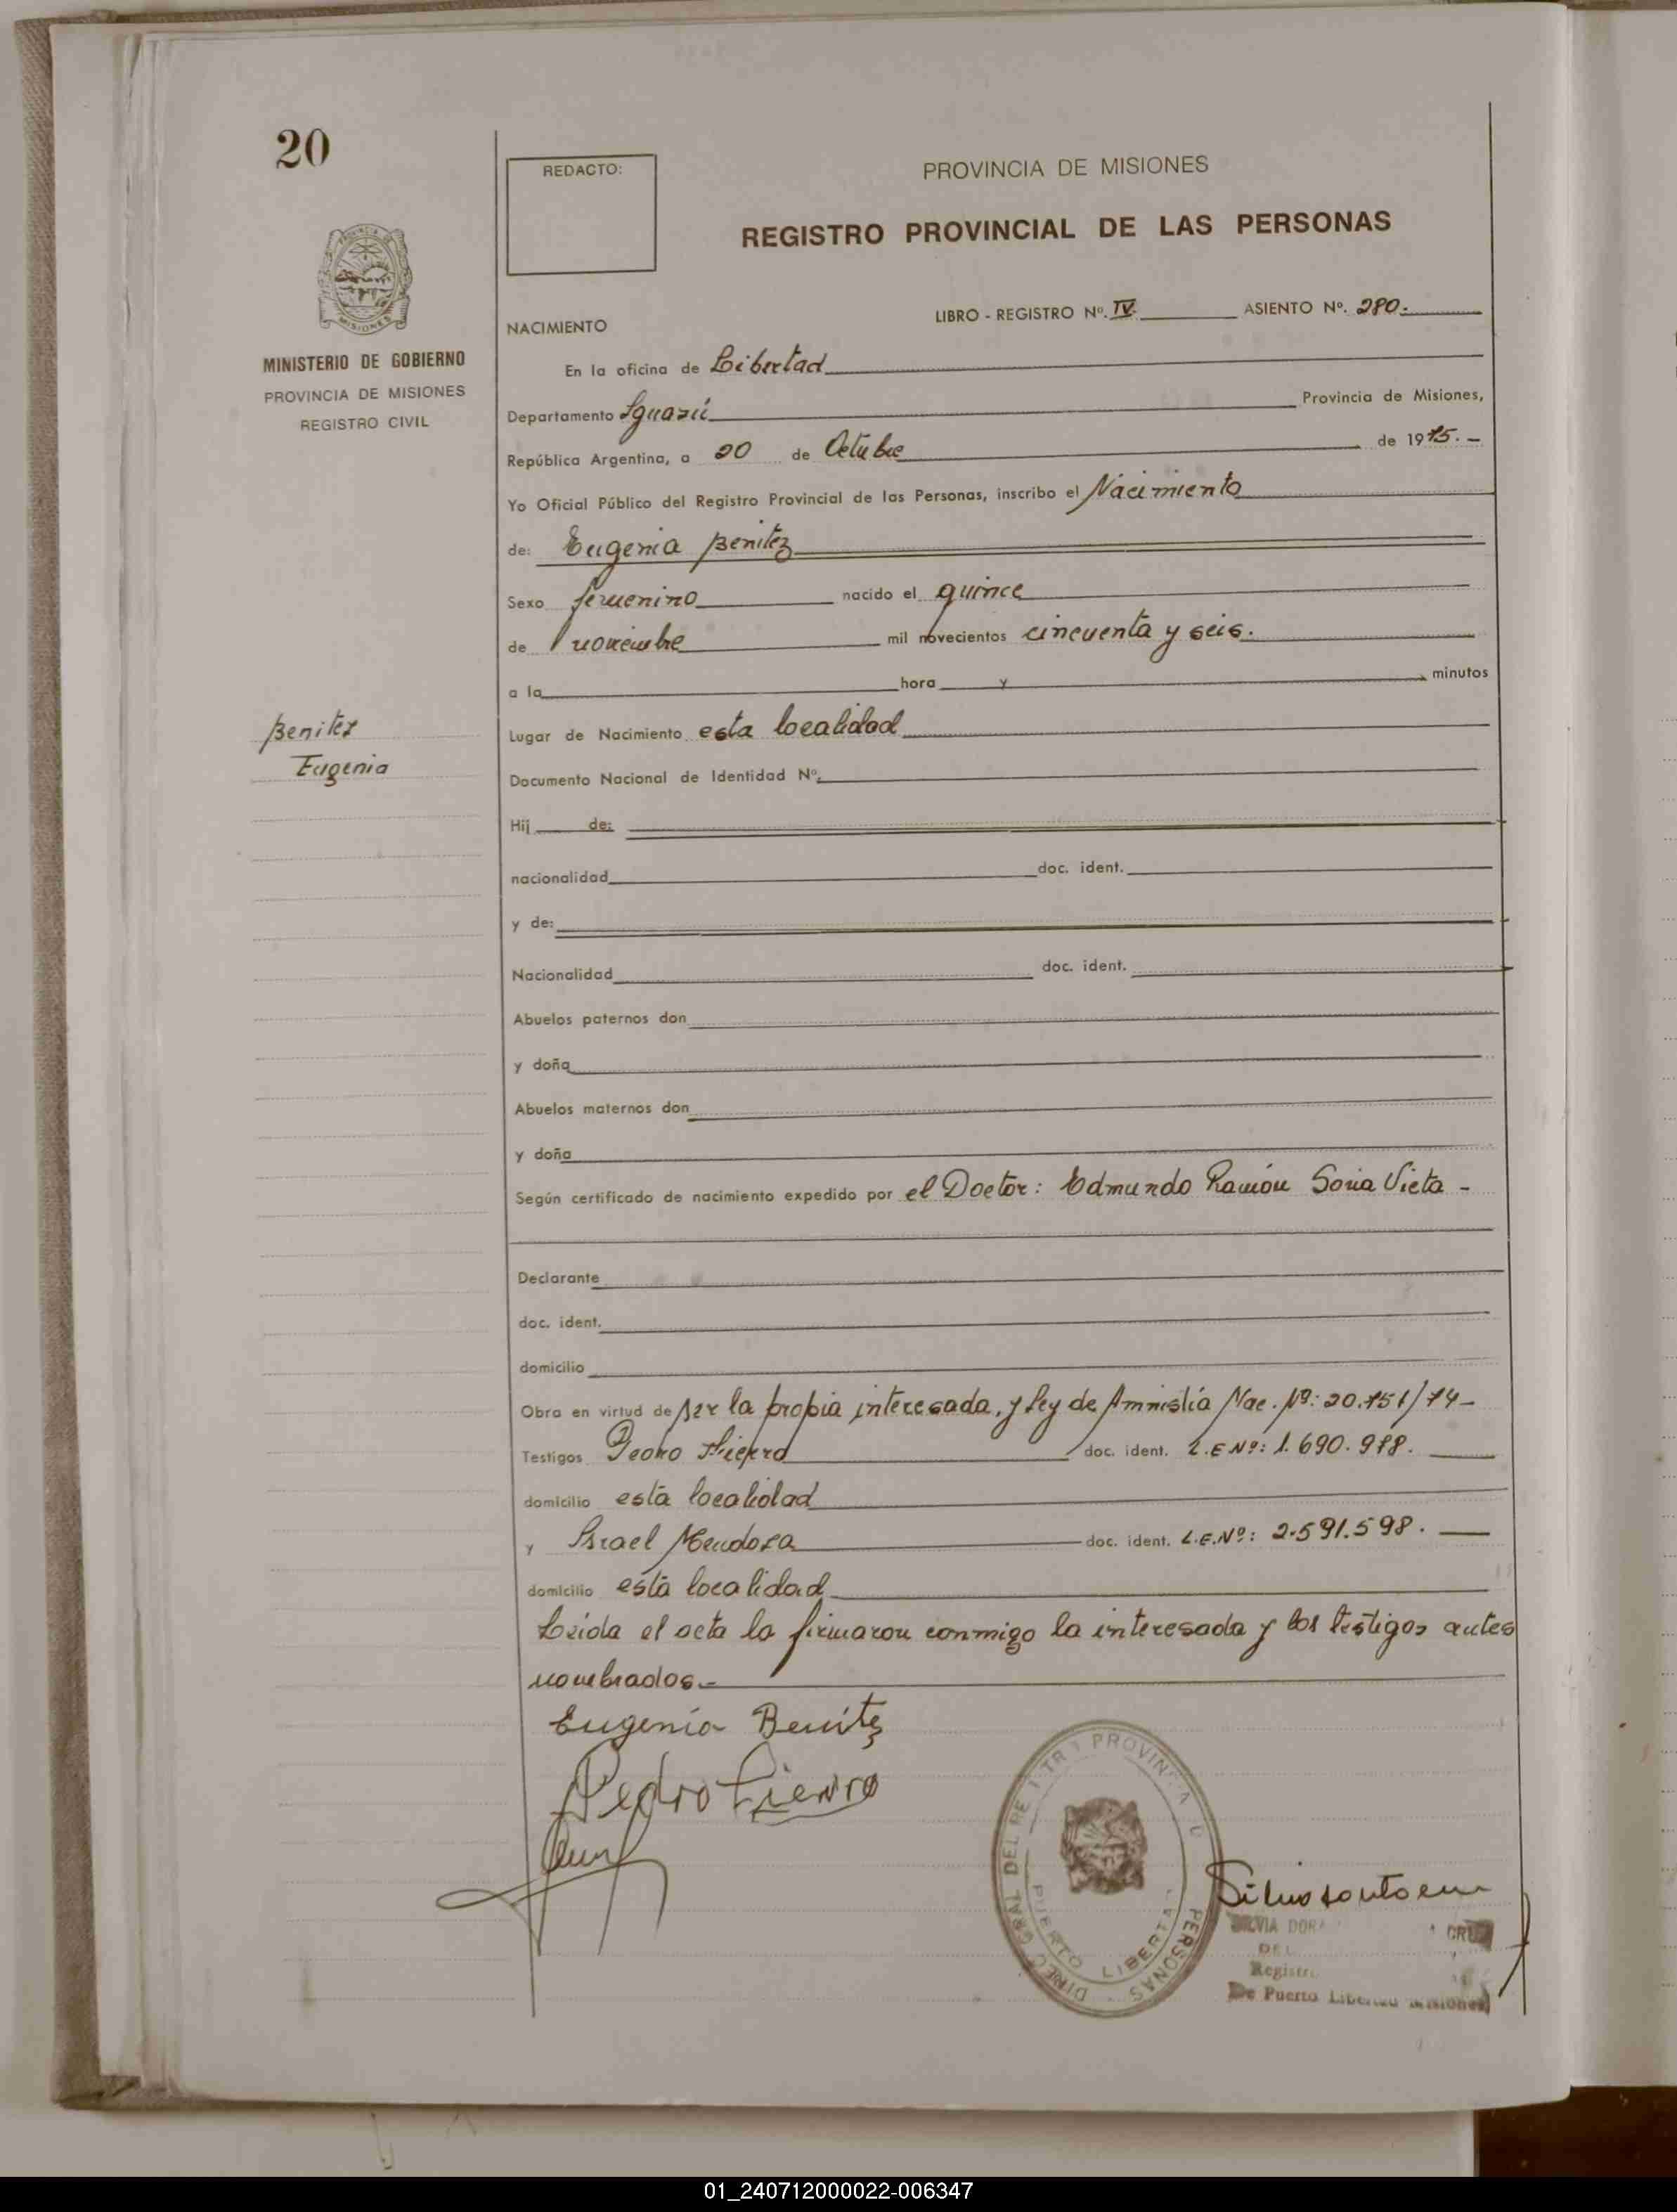 20
REDACTO:
PROVINCIA DE MISIONES
REGISTRO PROVINCIAL DE LAS PERSONAS
MINISTERIO DE GOBIERNO
PROVINCIA DE MISIONES
REGISTRO CIVIL
LIBRO - REGISTRO Nº. IV. ASIENTO Nº. 280.
NACIMIENTO
En la oficina de Libertad
Departamento Iguazú Provincia de Misiones,
República Argentina, a 20 de Octubre de 1975.-
Yo Oficial Público del Registro Provincial de las Personas, inscribo el Nacimiento
de: Eugenia Benitez
Sexo femenino nacido el quince
de noviembre mil novecientos cincuenta y seis.
a la hora y minutos
Benitez
Eugenia
Lugar de Nacimiento esta localidad
Documento Nacional de Identidad Nº.
Hij de:
nacionalidad doc. ident.
y de:
Nacionalidad doc. ident.
Abuelos paternos don
y doña
Abuelos maternos don
y doña
Según certificado de nacimiento expedido por el Doctor: Edmundo Ramón Soria Vieta -
Declarante
doc. ident.
domicilio
Obra en virtud de ser la propia interesada, y ley de Amnistía Nac. Nº: 20.751/74-
Testigos Pedro Fierro doc. ident. L.E Nº: 1.690.978.
domicilio esta localidad
y Israel Mendoza doc. ident. L.E.Nº: 2.591.598.
domicilio esta localidad
Leida el acta la firmaron conmigo la interesada y los testigos antes
nombrados.-
Eugenia Benitez
Pedro Fierro
PUERTO LIBERTAD
PERSONAS
SILVIA DORA CRUZ
DEL
Registro
De Puerto Libertad Misiones
01_240712000022-006347